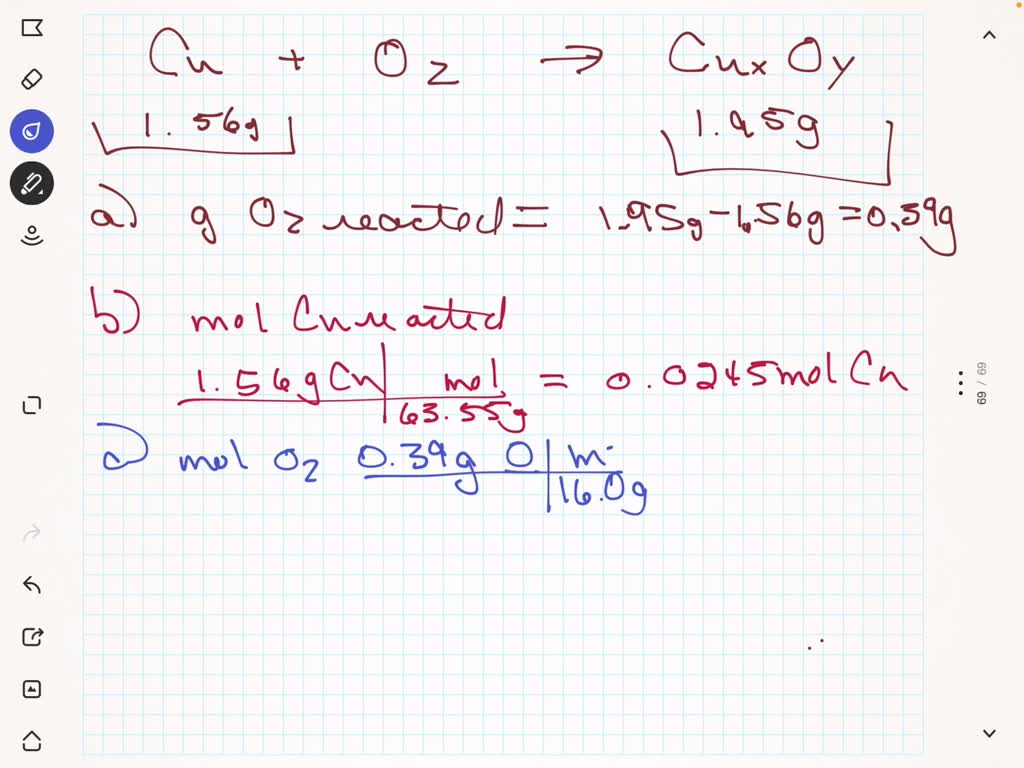 Cu + O2 → CuxOy
1.56g 1.95g
a) g O2 reacted = 1.95g - 1.56g = 0.39g
b) mol Cu reacted
1.56g Cu | mol = 0.0245 mol Cu
63.55g
c) mol O2 0.39g O | m
16.0g
69 / 69